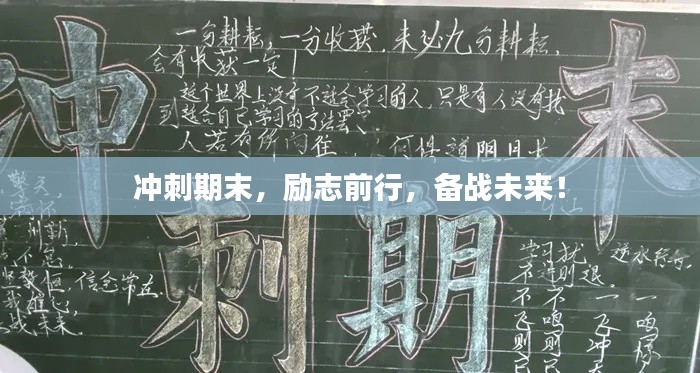 冲刺期末
一分耕耘,一分收获,未必九分耕耘,
会有收获一定!
这个世界上没有不适合学习的人,只是有人没有找
到适合自己学习的方法罢了
人若有所向往,何惧道阻且长
冲刺期末，励志前行，备战未来！
信念常在
学习犹 逆水行舟
不进则退
不飞则已
不鸣则已
一飞冲
一鸣惊